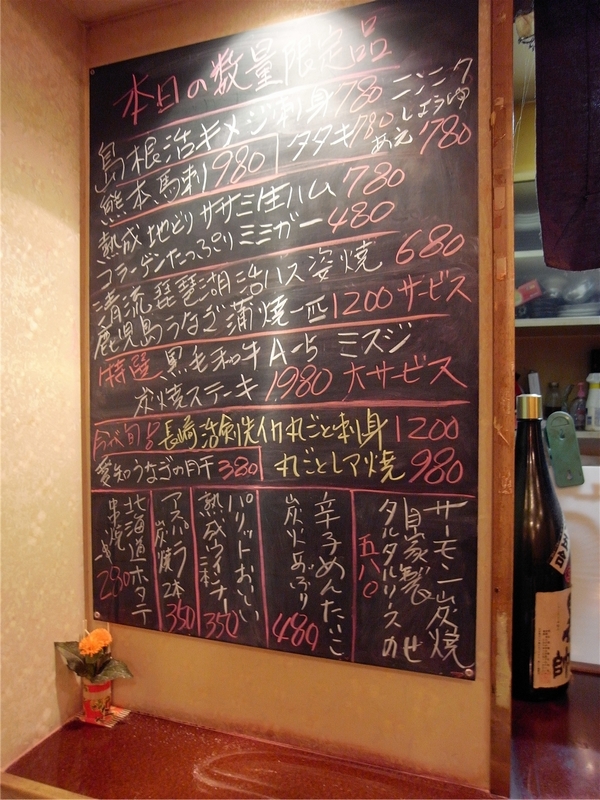 本日の数量限定品
島根活キメジ刺身780 ニンニク
タタキ780 しょうゆ
あえ 780
熊本馬刺 980
熟成地どりササミ生ハム 780
コラーゲンたっぷりミミガー 480
清流琵琶湖活バス姿焼 680
鹿児島うなぎ蒲焼一匹1200サービス
特選 黒毛和牛A-5 ミスジ
炭焼ステーキ 1,980 大サービス
今が旬品 長崎活剣先イカ丸ごと刺身 1200
愛知うなぎの肝干 380 丸ごとレア焼 980
サーモン炭焼
自家製
タルタルソースのせ
五八〇
辛子めんたいこ
炭火あぶり
480
パリットおいしい
熟成ウインナー
350
アスパラ
炭焼2本
350
北海道ホタテ
串焼
280